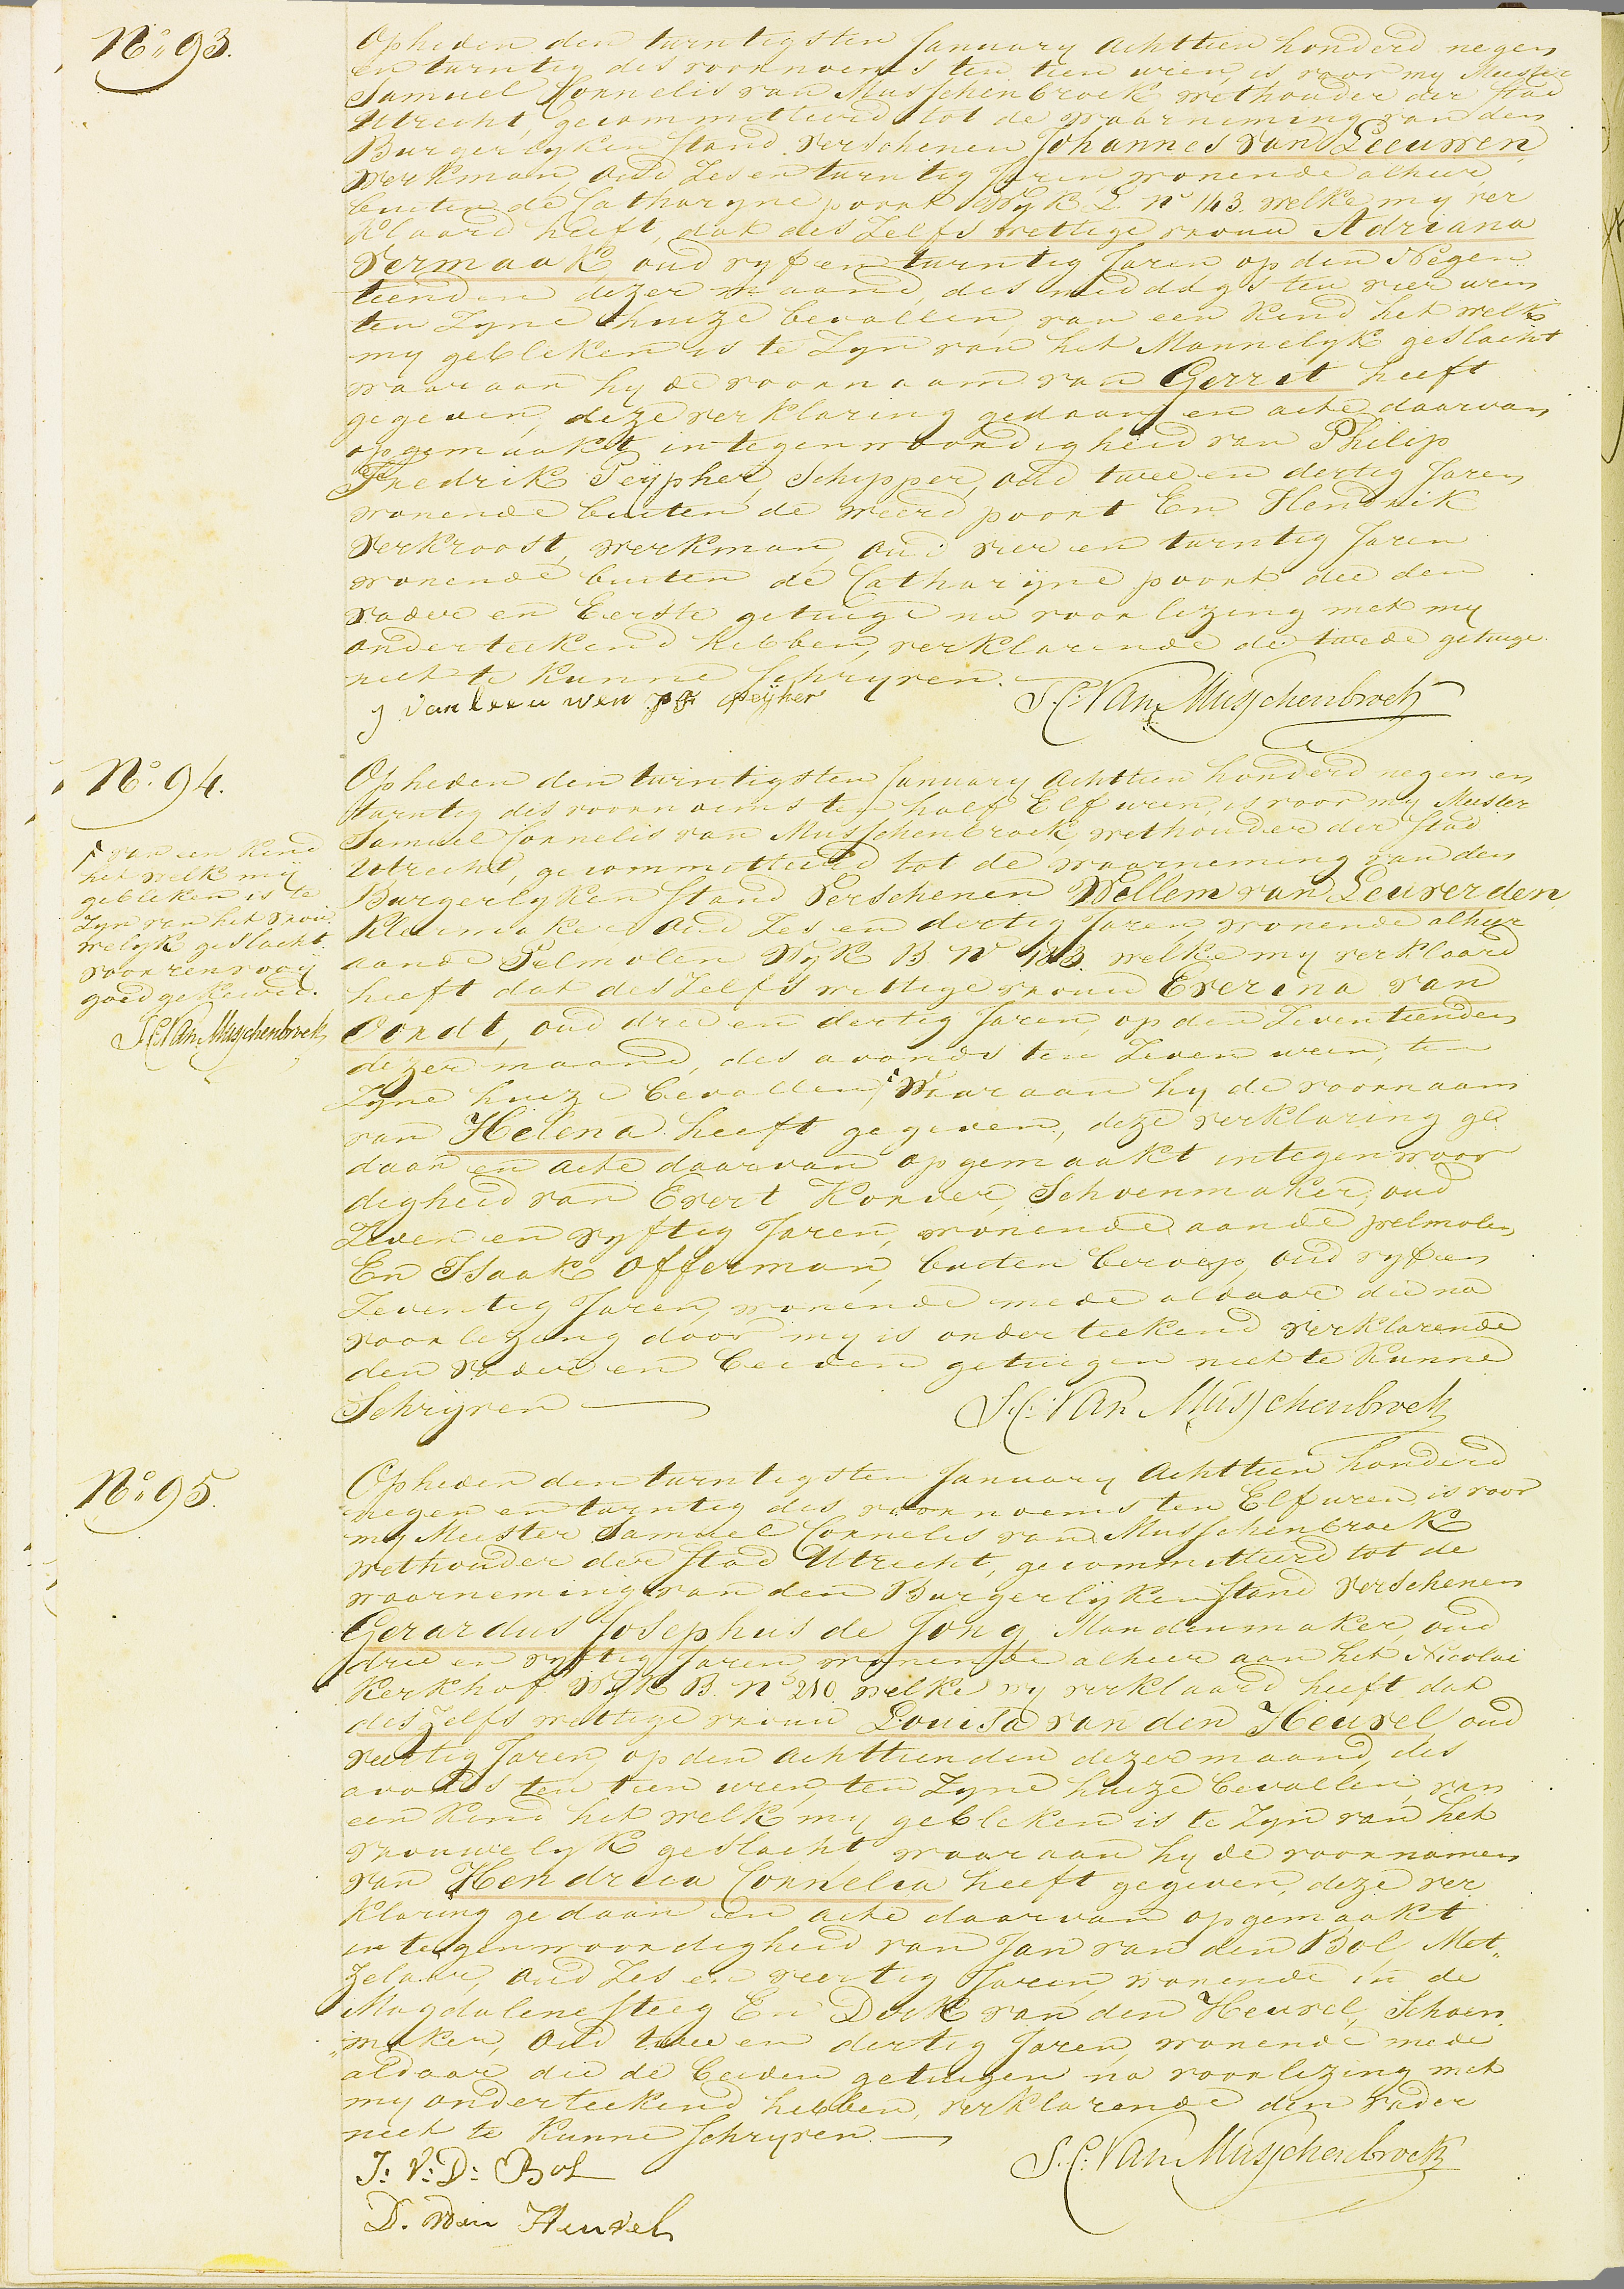 N:o 93.
Op heden den twintigsten January Achttien honderd negen
en twintig des voornoems ten tien uren, is voor my Meester
Samuel Cornelis van Musschenbroek wethouder der Stad
Utrecht, gecommitteerd tot de waarneming van den
Burgerlyken Stand Verschenen Johannes van Leeuwen,
werkman, oud Zes en twintig Jaren, wonende alhier
buiten de Catharyne poort Wyk L. No 143. welke my ver
klaard heeft, dat des Zelfs wettige vrouw Adriana
Vermaak oud vyf en twintig Jaren op den Negen
tienden dezer maand, des middags ten vier uren
ten Zyne huize bevallen, van een Kind het welk
my gebleken is te Zyn van het Mannelyk geslacht
waar aan hy de voornaam van Gerrit heeft
gegeven, deze verklaring gedaan, en acte daarvan
opgemaakt, in tegenwoordigheid van Philip
Fredrik Peypher, Schipper, oud twee en dertig Jaren
wonende buiten de weerd poort En Hendrik
Verkroost, werkman, oud vier en twintig Jaren
wonende buiten de Catharijne poort die den
Vader en Eerste getuige na voorlezing met my
onderteekend hebben, verklarende de tweede getuige
niet te kunne Schryven.
j van leeuwen P F Peijher
S. C: Van Musschenbroek
N:o 94.
Op heden den twintigsten January Achttien honderd negen en
twintig des voornoems ten half Elf uren, is voor my Meester
Samuel Cornelis van Musschenbroek, wethouder der Stad
Utrecht, gecommitteerd tot de waarneming van den
Burgerlyken Stand Verschenen Willem van Leuverden,
Kleermaker oud Zes en dertig Jaren, wonende alhier
aan de Pelmolen Wyk B No 183. welke my verklaard
heeft dat des Zelfs wettige vrouw Everina van
Oordt, oud drie en dertig Jaren, op den Zeventienden
dezer maand, des avonds ten Zeven uren, ten
Zyne huize bevallen, Waar aan hy de voornaam
van Helena heeft gegeven, deze verklaring ge
daan en acte daarvan opgemaakt in tegenwoor
digheid van Evert Konder, Schoenmaker, oud
Zeven en vyftig Jaren, wonende aan de pelmolen
En Isaak Offerman, buiten beroep, oud vyf en
Zeventig Jaren, wonende mede aldaar die na
voorlezing door my is onderteekend verklarende
den Vader en beiden getuigen niet te kunne
Schryven
S. C: Van Musschenbroek
van een Kind
het welk mij
gebleken is te
Zyn van het vrou
welyk geslacht.
voor renvooij
goed gekeurd.
S. C. Van Musschenbroek
N:o 95.
Op heden den twintigsten January Achttien honderd
negen en twintig des voornoems ten Elf uren is voor
my Meester Samuel Cornelis van Musschenbroek
wethouder der Stad Utrecht, gecommitteerd tot de
waarneming van den Burgerlijken Stand Verschenen
Gerardus Josephus de Jong, Mandenmaker, oud
drie en vyftig Jaren wonende alhier aan het Nicolai
Kerkhof Wyk B. No 210. welke my verklaard heeft dat
deszelfs wettige vrouw Louisa van den Heuvel, oud
veertig Jaren, op den Achttienden dezer maand, des
avonds ten tien uren, ten Zyne huize bevallen, van
een Kind het welk my gebleken is te Zyn van het
vrouwelyk geslacht, waar aan hy de voornamen
van Hendrica Cornelia heeft gegeven, deze ver
klaring gedaan en acte daarvan opgemaakt
in tegenwoordigheid van Jan van den Bol, Met
zelaar, oud Zes en veertig Jaren, wonende in de
Magdalene Steeg En Dirk van den Heuvel, Schoen
maker, oud twee en dertig Jaren, wonende mede
aldaar die de beiden getuigen na voorlezing met
my onderteekend hebben, verklarende den Vader
niet te kunne Schryven.
S. C. Van Musschenbroek
J: V: D: Bol
D. vden Heuvel